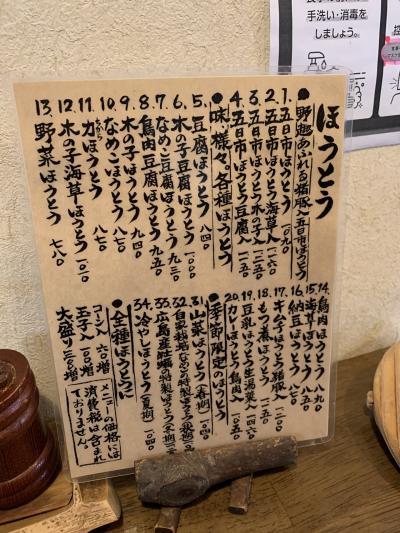 手洗い・消毒
をしましょう。
ほうとう
●野趣あふれる猪豚入五日市ほうとう
1. 五日市ほうとう 一〇九〇
2. 五日市ほうとう海草入 一一六〇
3. 五日市ほうとう木の子入
4. 五日市ほうとう豆腐入
●味、様々。各種ほうとう
5. 豆腐ほうとう 八四〇
6. 木の子豆腐ほうとう 九三〇
7. なめこ豆腐ほうとう
8. 鳥肉豆腐ほうとう 九五〇
9. 木の子ほうとう 八七〇
10. なめこほうとう 八七〇
11. 力ほうとう
12. 木の子海草ほうとう 一〇一〇
13. 野菜ほうとう 七八〇
14. 鳥肉ほうとう 八九〇
15. 海草ほうとう
16. 納豆ほうとう
17. キムチほうとう猪豚入 一二〇〇
18. もつ煮ほうとう
19. 豆乳ほうとう生湯葉入 一四六〇
20. カレーほうとう鳥肉入 一〇五〇
●季節限定のほうとう
31. 山菜ほうとう(春期) 一〇四〇
32. 自家栽培なめこの特製ほうとう(秋期)
33. 広島産牡蠣の特製ほうとう(冬期)
34. 冷やしほうとう(夏期) 一〇四〇
●全種ほうとうに
コーン入 六〇増
玉子入 一〇〇増
大盛り 二〇〇増
メニューの価格には
消費税は含まれ
ておりません。